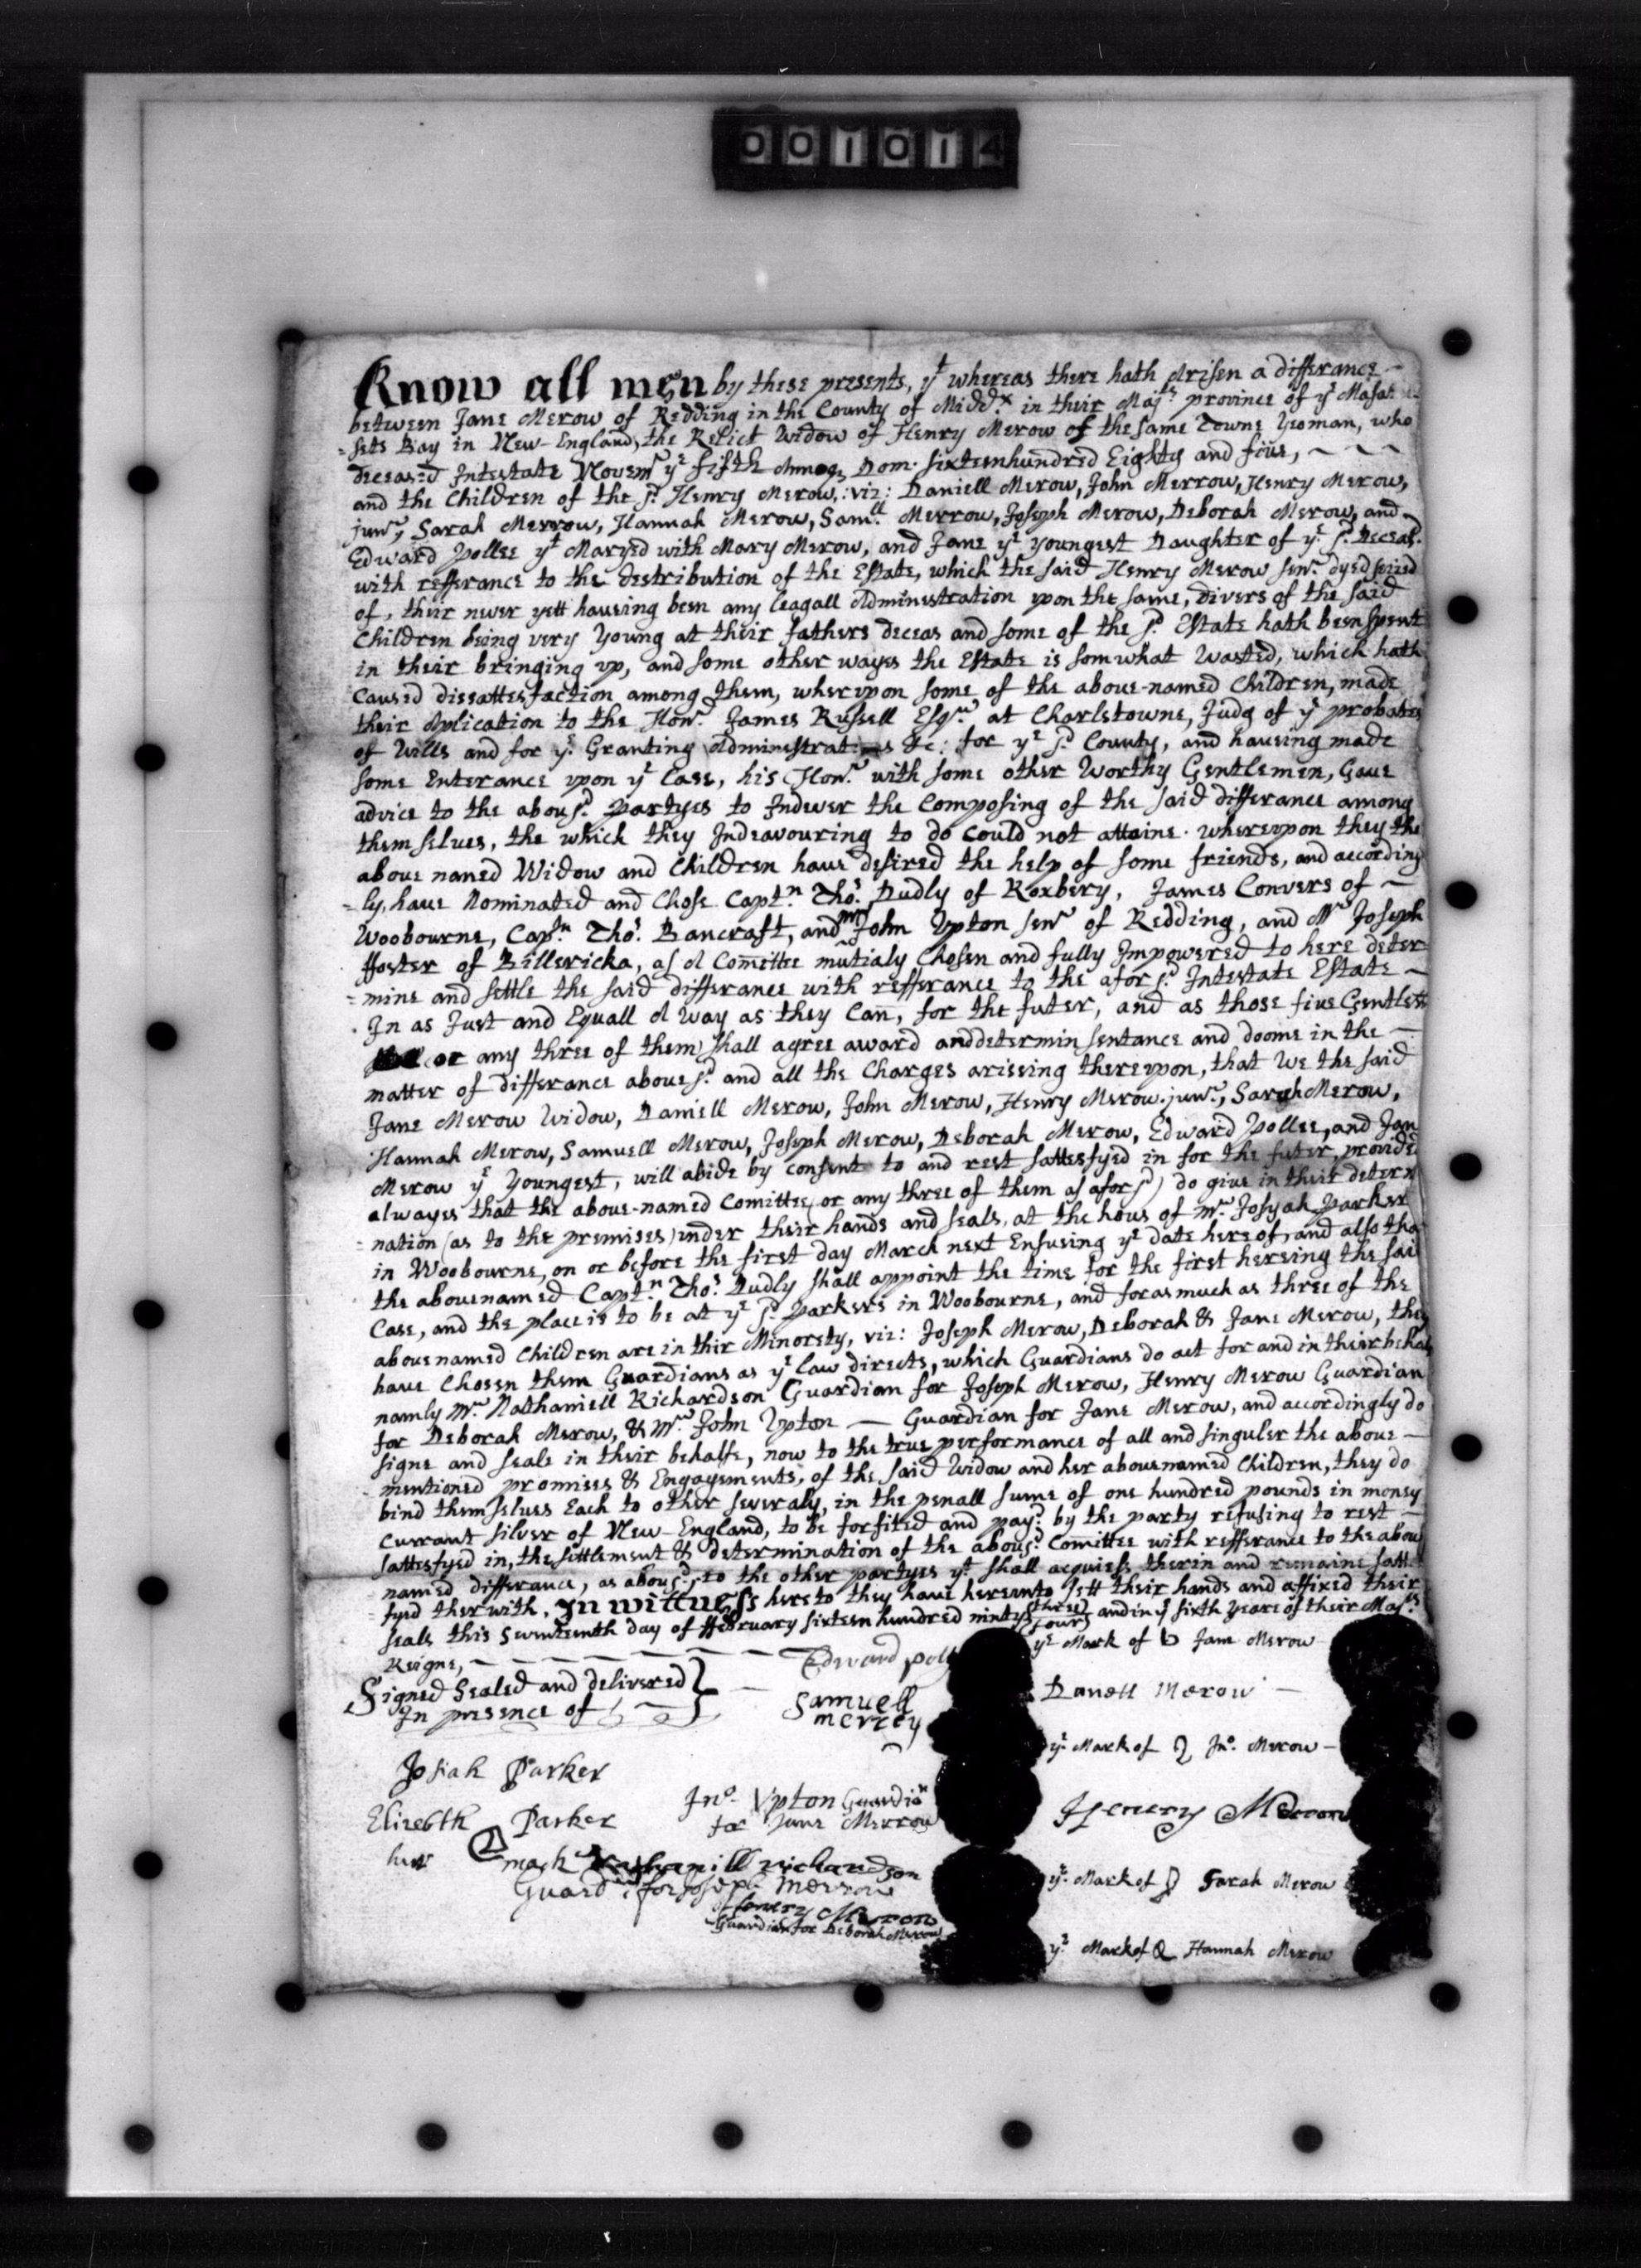 001014
Know all men by these presents, yt whereas there hath Arisen a differance
between Jane Merow of Redding in the County of Midd.x in their Majts province of ye Masah
=sets Bay in New-England, the Relict Widow of Henry Merow of the same Towne Yeoman, who
deceased Intestate Novemr ye fifth Annoq Dom. sixteenhundred Eighty and five,
and the Children of the sd Henry Merow, :viz: Daniell Merow, John Merrow, Henry Merow,
junr, Sarah Merrow, Hannah Merow, Samll Merrow, Joseph Merow, Deborah Merow, and
Edward Pollee yt Maryed with Mary Merow, and Jane ye youngest Daughter of ye sd Deceasd.
with refferance to the destribution of the Estate, which the said Henry Merow senr dyed seized
of, their never yett haveing been any leagall Administration upon the same, divers of the said
Children being very Young at their fathers deceas and some of the sd Estate hath been spent
in their bringing vp, and some other wayes the Estate is somwhat Wasted, which hath
Caused dissattesfaction among them, wherupon some of the above-named Children, made
their Aplication to the Honr James Russell Esqr at Charlstowne, Judg of ye probates
of Wills and for ye Granting Administrations &c: for ye sd County, and haveing made
some Enterance vpon ye Case, his Honr with some other Worthy Gentlemen, Gave
advice to the abovsd partyes to Indever the Composing of the said differance among
themselves, the which they Indeavouring to do Could not attaine. wherevpon they the
above named Widow and Children have desired the help of some friends, and according
=ly, have Nominated and Chose Captn Thos Dudly of Roxbery, James Convers of
Woobourne, Capn Thos Bancraft, and mr John Vpton senr of Redding, and Mr Joseph
ffoster of Billericka, as A Comittee mutialy Chosen and fully Impowered to here deter
=mine and settle the said differance with refferance to the aforsd Intestate Estate
In as Just and Equall A Way as they Can, for the futer, and as those five Gentlem
or any three of them shall agree award and determin sentance and doome in the
matter of differance abovesd and all the Charges ariseing therevpon, that We the said
Jane Merow Widow, Daniell Merow, John Merow, Henry Merow.junr, Sarah Merow,
Hannah Merow, Samuell Merow, Joseph Merow, Deborah Merow, Edward Pollee, and Jan
Merow ye Youngest, will abide by consent to and rest sattesfyed in for the futer, provided
alwayes that the above-named Comittee, or any three of them as aforsd) do give in their determ
=nation (as to the premises) under their hands and seals, at the hous of mr Josyah Parker
in Woobourne, on or before the first day March next Ensueing ye date hereof, and also tha
the abovenamed Captn Thos Dudly shall appoint the time for the first hereing the said
Case, and the place is to be at ye sd Parkers in Woobourne, and forasmuch as three of the
abovenamed Children are in thir Minorety, viz: Joseph Merow, Deborah & Jane Merow, they
have Chosen them Guardians as ye law directs, which Guardians do act for and in their behalf
namly mr Nathaniell Richardson Guardian for Joseph Merow, Henry Merow Guardian
for Deborah Merow, & mr John Vpton — Guardian for Jane Merow, and accordingly do
signe and seale in their behalfe, now to the true performance of all and singuler the above
mentioned promises & Engagements, of the said Widow and her abovenamed Children, they do
bind themselves Each to other severaly, in the penall sume of one hundred pounds in money
Currant silver of New-England, to be forfited and payd by the party refusing to rest
sattesfyed in, the settlement & determination of the abovsd Comittee with refferance to the above
named differance, as abovsd, to the other partyes yt shall acquiess therin and remaine satte
=fyed therwith, In wittness hereto they have herevnto sett their hands and affixed their
seals this seventeenth day of ffebruary sixteen hundred ninty three four and in ye sixth Yeare of their Majts
Reigne,
Signed Sealed and delivered
In presence of
Edward poll
Samuell
merrey
Josiah Parker
Elizebth Parker
her mark
Jno Vpton Guardin
for Jane Merrow
Nathanill richardson
Guardin for Joseph Merrow
Henery Merow
Guardian for Deborah Merow
ye Mark of Jane Merow
Daniell Merow
ye Mark of Jno. Merow
Henery Merrow
ye Mark of Sarah Merow
ye Mark of Hannah Merow